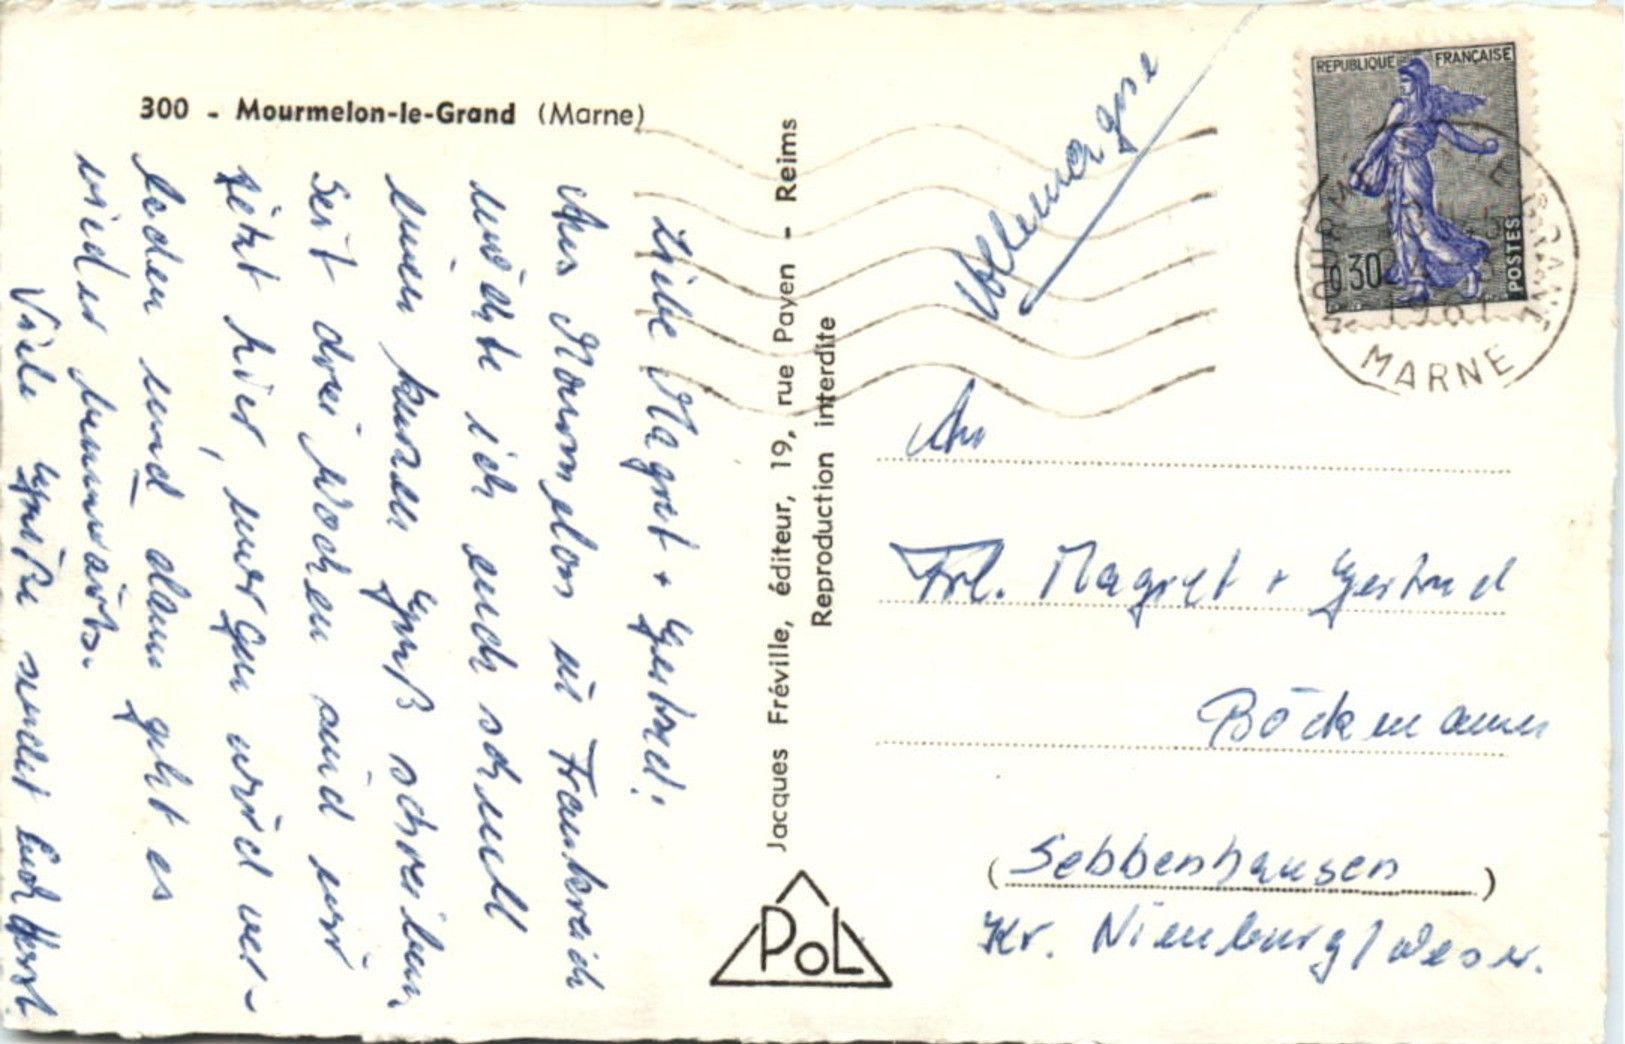 300 - Mourmelon-le-Grand (Marne)
Liebe Magret + Gertrud!
Aus Mourmelon in Frankreich
möchte ich euch schnell
einen kurzen Gruß schreiben,
Seit drei Wochen sind wir
jetzt hier, morgen wird ver-
laden und dann geht es
wieder heimwärts.
Viele Grüße sendet Euch Horst.
Jacques Fréville, éditeur, 19, rue Payen - Reims
Reproduction interdite
PoL
Allemagne
REPUBLIQUE FRANÇAISE
0,30
POSTES
MOURMELON-LE-GRAND
1961
MARNE
An
Frl. Magret + Gertrud
Böckmann
(Sebbenhausen)
Kr. Nienburg/Weser.